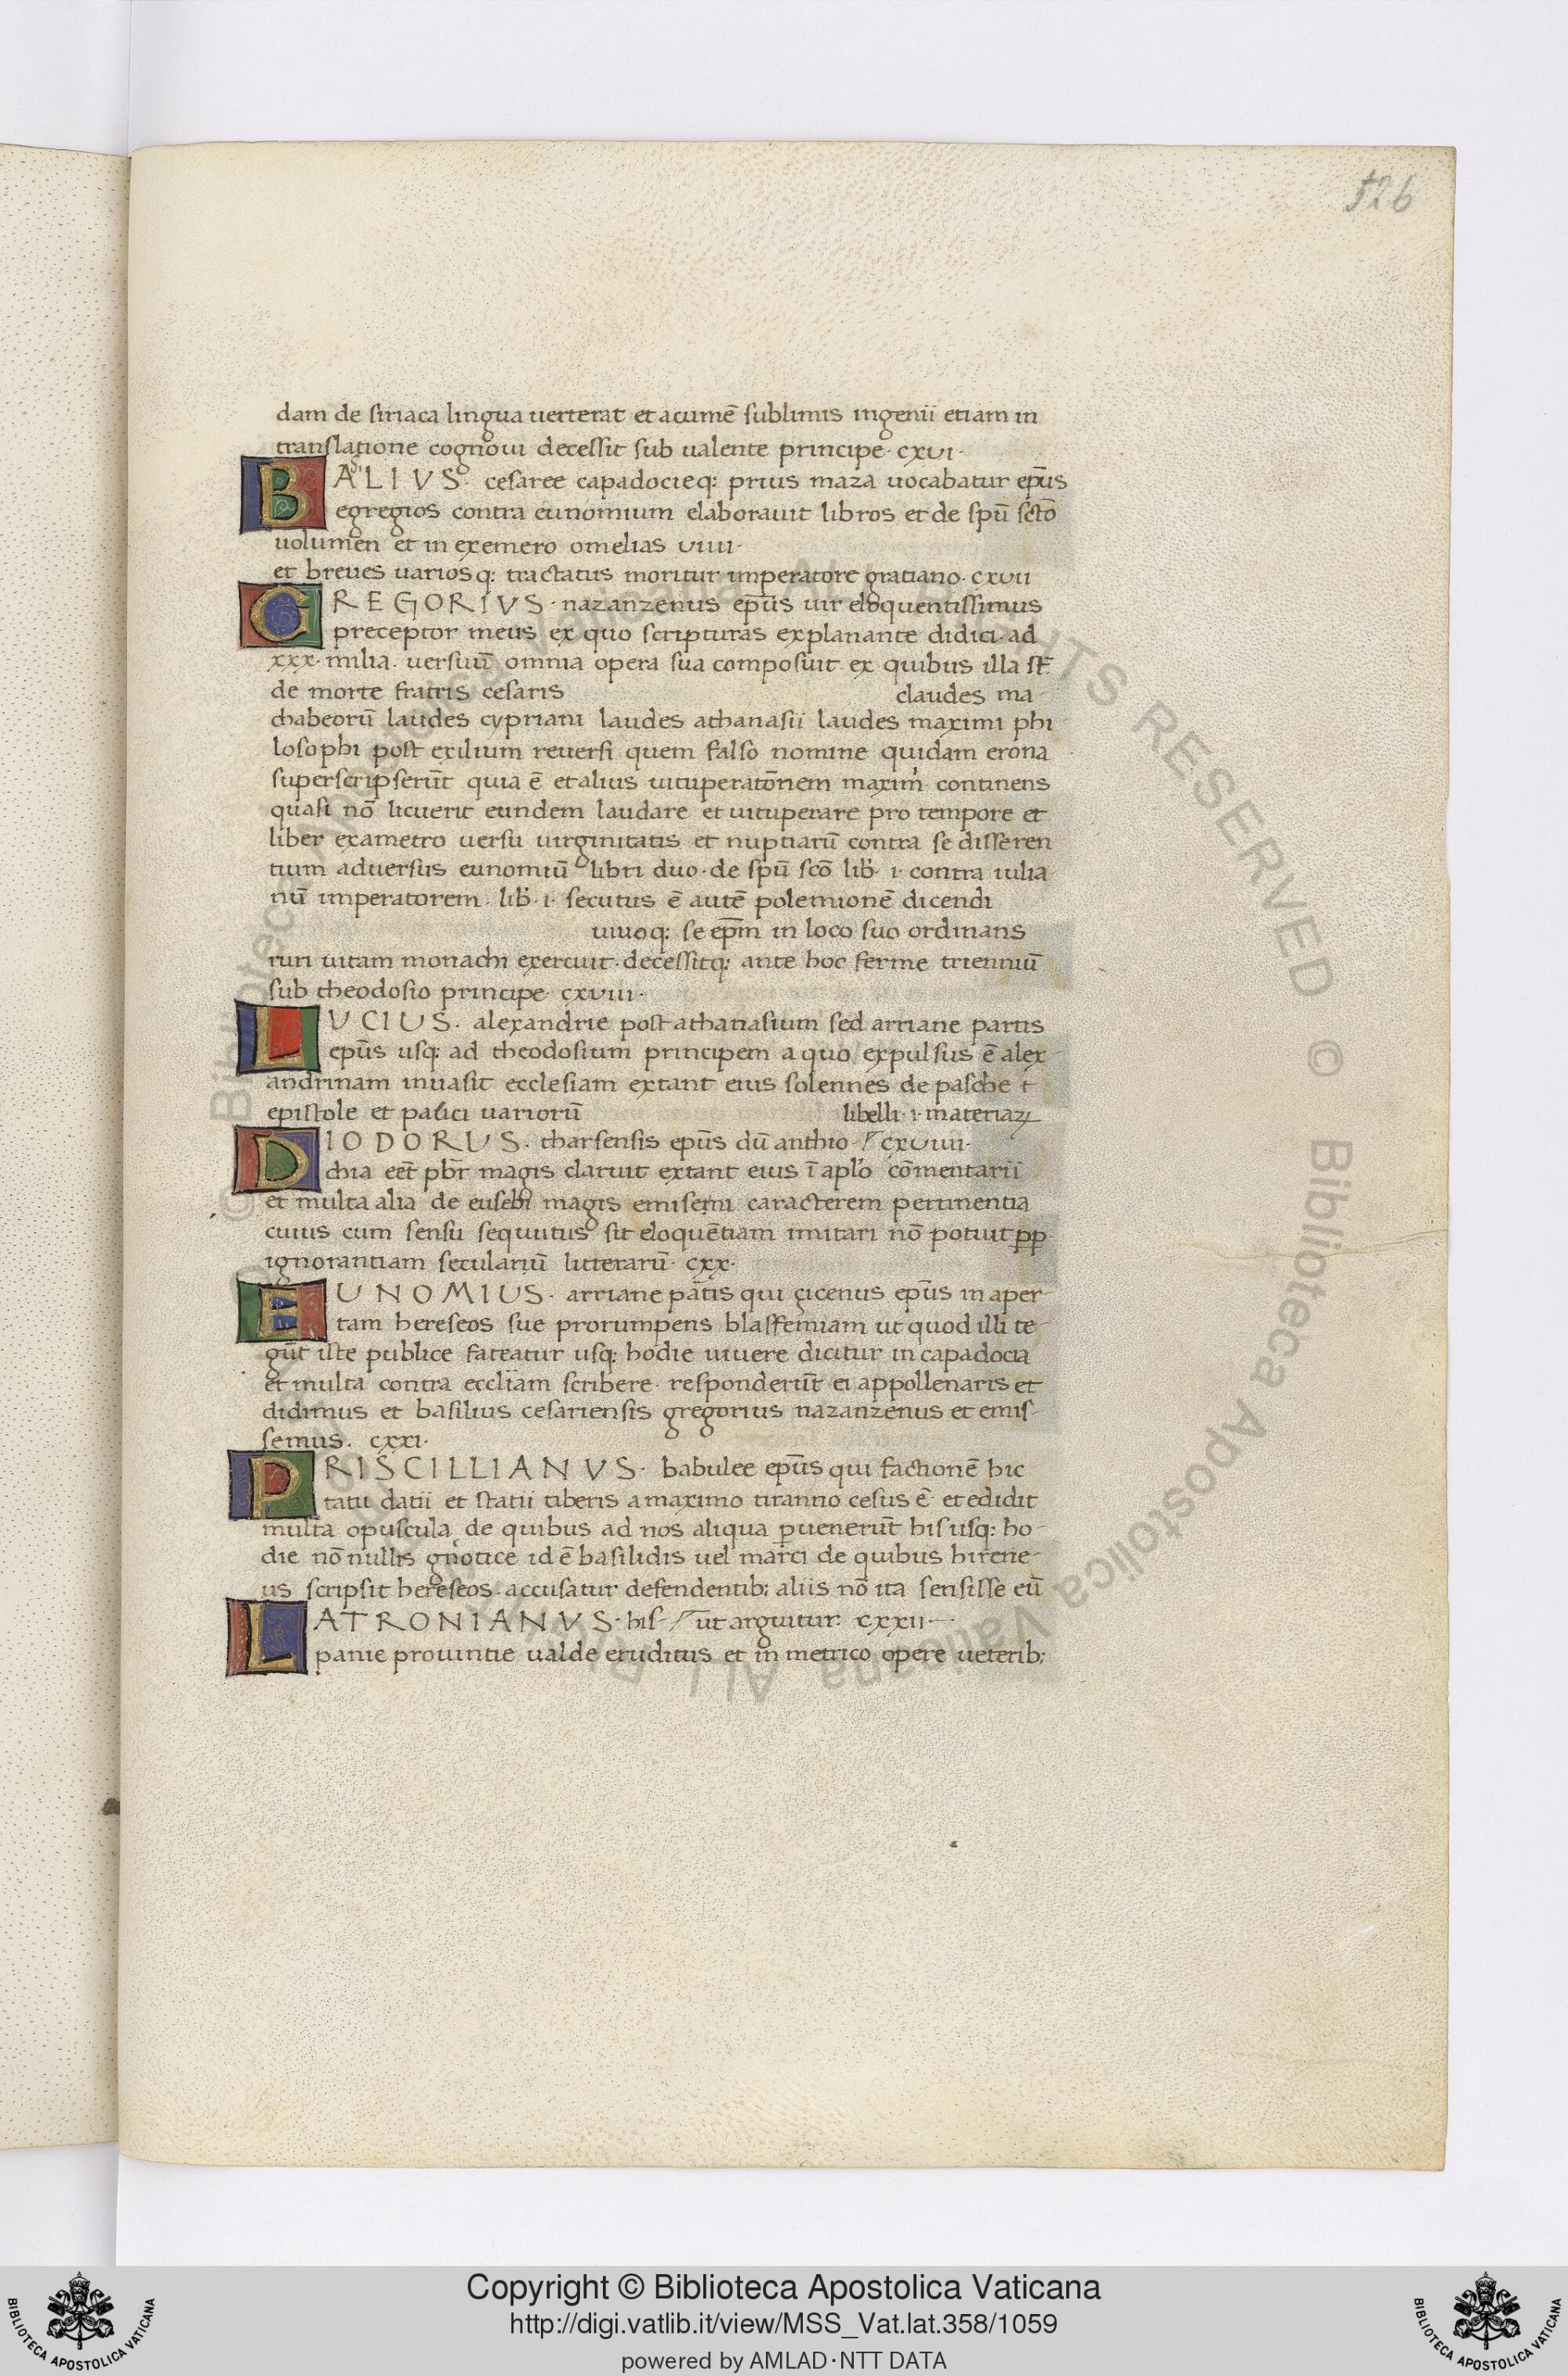 526
dam de siriaca lingua uerterat et acumē sublimis ingenii etiam in
translatione cognoui decessit sub ualente principe· cxvi·
BALIVS· cesaree capadocieq: prius maza uocabatur ep̄us
egregios contra eunomium elaborauit libros et de spū sctō
uolumen et in exemero omelias viiii·
et breues uariosq: tractatus moritur imperatore gratiano· cxvii
GREGORIVS· nazanzenus ep̄us uir eloquentissimus
preceptor meus ex quo scripturas explanante didici· ad
xxx· milia· uersuū omnia opera sua composuit ex quibus illa st̄
de morte fratris cesaris claudes ma
chabeorū laudes cypriani laudes athanasii laudes maximi phi
losophi post exilium reuersi quem falso nomine quidam erona
superscripserūt quia ē et alius uituperatōnem maxim' continens
quasi nō licuerit eundem laudare et uituperare pro tempore et
liber exametro uersu uirginitatis et nuptiarū contra se disseren
tium aduersus eunomiū libri duo· de spū scō lib· i· contra iulia
nū imperatorem· lib· i· secutus ē autē polemionē dicendi
uiuoq: se ep̄m in loco suo ordinans
ruri uitam monachi exercuit· decessitq: ante hoc ferme trienniū
sub theodosio principe· cxviii·
LUCIUS· alexandrie post athanasium sed arriane partis
ep̄us usq: ad theodosium principem a quo expulsus ē alex
andrinam inuasit ecclesiam extant eius solennes de pasche t
epistole et pauci uariorū libelli· i· materiaꝝ
DIODORUS· tharsensis ep̄us dū anthio cxviiii·
chia eēt pbr̄ magis claruit extant eius ī aplō cōmentarii
et multa alia de eusebi magis emiseni caracterem pertinentia
cuius cum sensu sequutus sit eloquētiam imitari nō potuit pp
ignorantiam seculariū litterarū· cxx·
EUNOMIUS· arriane pātis qui çicenus ep̄us in aper
tam hereseos sue prorumpens blasfemiam ut quod illi te
gūt iste publice fateatur usq: hodie uiuere dicitur in capadocia
et multa contra eccl̄iam scribere· responderūt ei appollenaris et
didimus et basilius cesariensis gregorius nazanzenus et emis
semus· cxxi·
PRISCILLIANVS· babulee ep̄us qui factionē hic
tatii datii et statii tiberis a maximo tiranno cesus ē· et edidit
multa opuscula de quibus ad nos aliqua puenerūt his usq: ho
die nō nullis gnotice id ē basilidis uel marci de quibus hirene
us scripsit hereseos· accusatur defendentib; aliis nō ita sensisse eū
LATRONIANVS· his ut arguitur· cxxii
panie prouintie ualde eruditus et in metrico opere ueterib;
© Biblioteca Apostolica Vaticana ALL RIGHTS RESERVED © Biblioteca Apostolica Vaticana ALL RIGHTS RESERVED
Copyright © Biblioteca Apostolica Vaticana
http://digi.vatlib.it/view/MSS_Vat.lat.358/1059
powered by AMLAD·NTT DATA
BIBLIOTECA APOSTOLICA VATICANA
BIBLIOTECA APOSTOLICA VATICANA